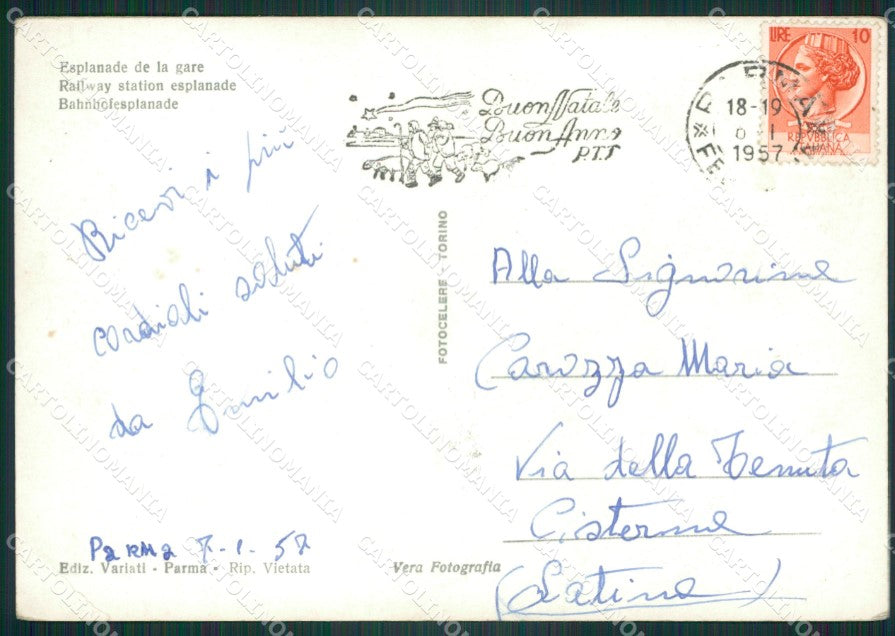 Esplanade de la gare
Railway station esplanade
Bahnhofesplanade
Buon Natale
Buon Anno
P.T.T
18-19
1957
LIRE 10
REPVBBLICA
ITALIANA
Ricevi i più
cordiali saluti
da Emilio
Parma 7-1-57
Ediz. Variati - Parma - Rip. Vietata
Vera Fotografia
FOTOCELERE - TORINO
Alla Signorina
Carozza Maria
Via della Tenuta
Cisterna
(Latina)
CARTOLINOMANIA